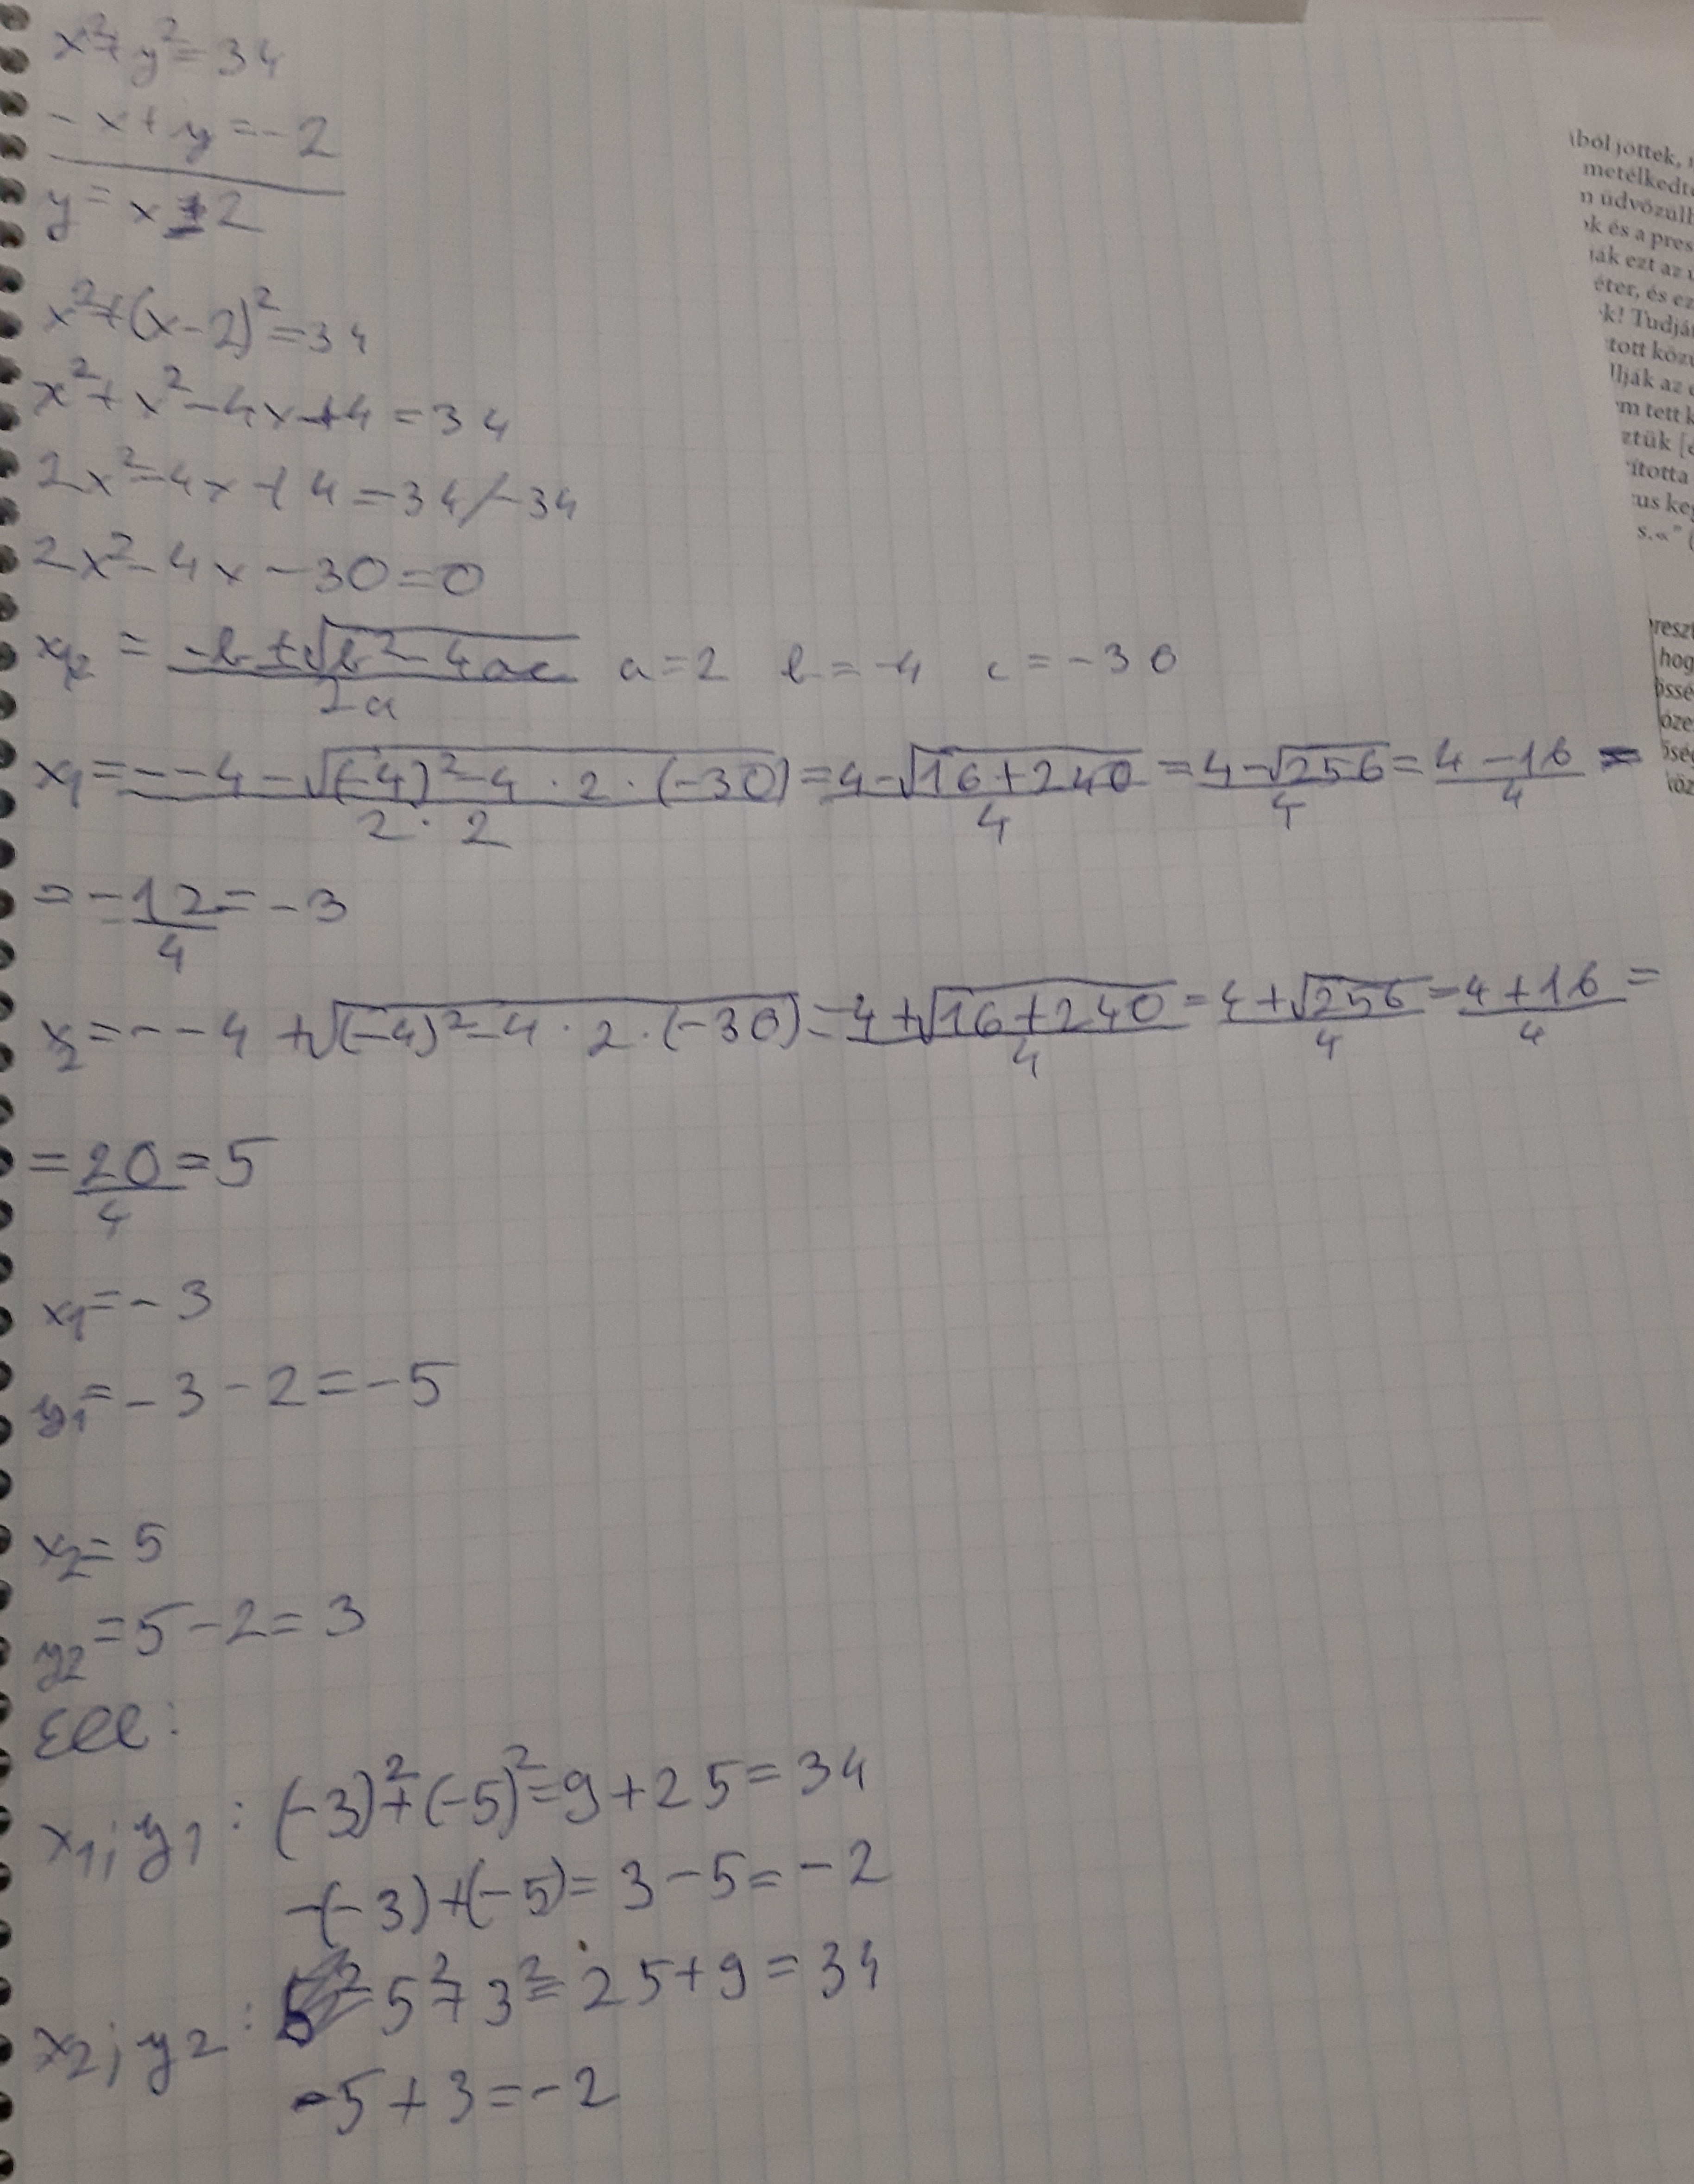 x²+y²=34
-x+y=-2
y=x-2
x²+(x-2)²=34
x²+x²-4x+4=34
2x²-4x+4=34/-34
2x²-4x-30=0
x₁,₂ = (-b±√(b²-4ac))/2a a=2 b=-4 c=-30
x₁=(--4-√((-4)²-4·2·(-30)))/(2·2)=(4-√(16+240))/4=(4-√256)/4=(4-16)/4=
=-12/4=-3
x₂=--4+√((-4)²-4·2·(-30))=(4+√(16+240))/4=(4+√256)/4=(4+16)/4=
=20/4=5
x₁=-3
y₁=-3-2=-5
x₂=5
y₂=5-2=3
Ell:
x₁;y₁: (-3)²+(-5)²=9+25=34
-(-3)+(-5)=3-5=-2
x₂;y₂: 5²+3²=25+9=34
-5+3=-2
ból jöttek,
metélkedt
n üdvözülh
k és a pres
ják ezt az
éter, és ez
k! Tudjá
tott köz
llják az
m tett k
ztük [
ította
us keg
s.«” (
reszt
hog
össé
őse
köz